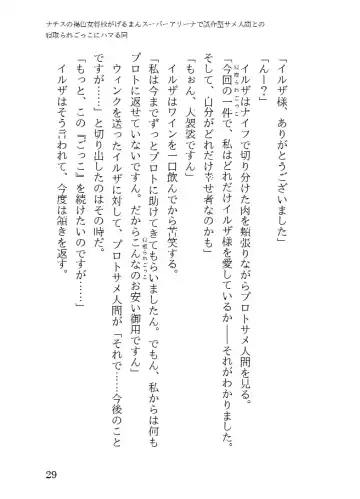 ナチスの褐色女将校がげるまんスーパーアリーナで試作型サメ人間との
寝取られごっこにハマる同
「イルザ様、ありがとうございました」
「んー？」
イルザはナイフで切り分けた肉を頬張りながらプロトサメ人間を見る。
「今回の一件で、私はどれだけイルザ様を愛しているか――それがわかりました。
そして、自分がどれだけ幸せ者なのかも」
「もぉん、大袈裟ですん」
イルザはワインを一口飲んでから苦笑する。
「私は今までずっとプロトに助けてきてもらいましたん。でもん、私からは何も
プロトに返せていないですん。だからこんなのお安い御用ですん」
ウィンクを送ったイルザに対して、プロトサメ人間が「それで……今後のこと
ですが……」と切り出したのはその時だ。
「もっと、この『ごっこ』を続けたいのですが……」
イルザはそう言われて、今度は頷きを返す。
29